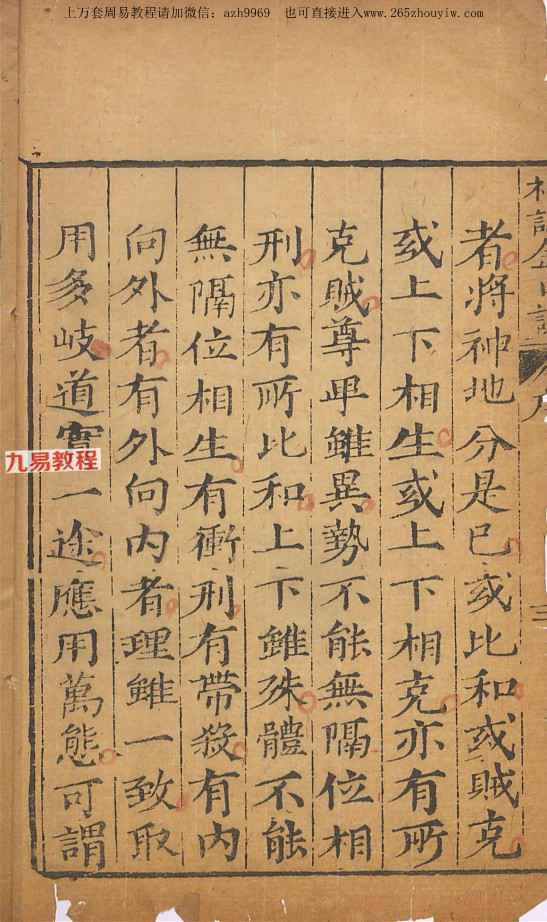 上万套周易教程请加微信：azh9969 也可直接进入www.265zhouyiw.com
者將神地分是已或比和或賊克
或上下相生或上下相克亦有所
克賊尊卑雖異勢不能無隔位相
刑亦有所比和上下雖殊體不能
無隔位相生有衝刑有帶殺有内
向外者有外向内者理雖一致取
用多岐道實一途應用萬態可謂
九易教程